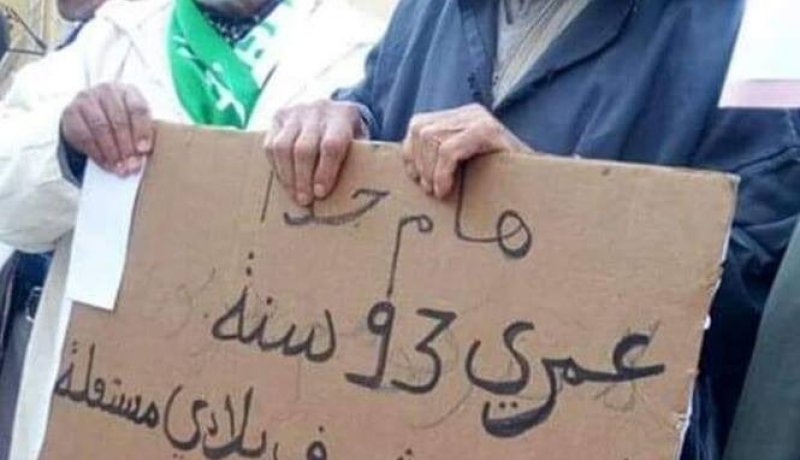 هام جدا
عمري 93 سنة
بلادي مستقلة